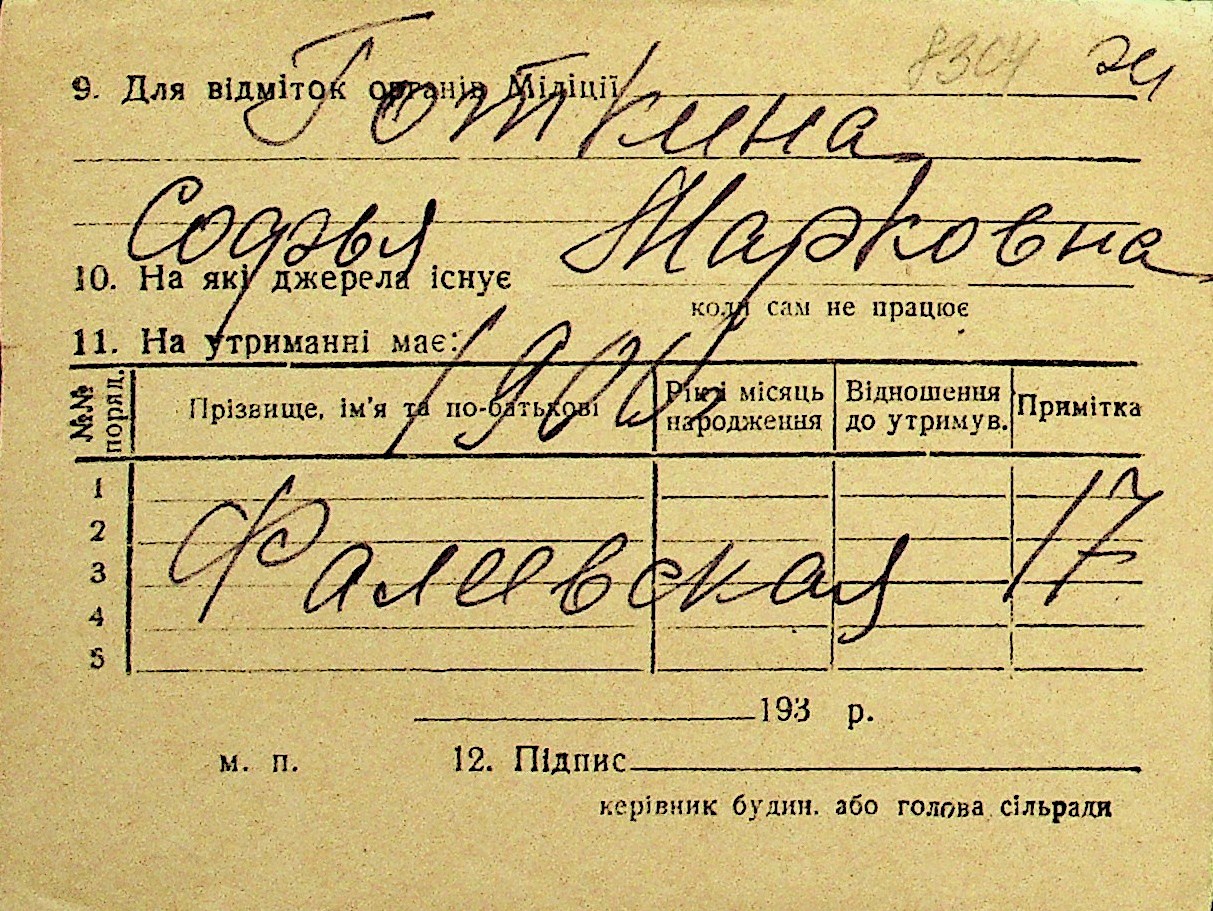 8304 эи
9. Для відміток органів Міліції
Готкина
Софья Марковна
10. На які джерела існує
коли сам не працює
11. На утриманні має:
1904
№№ поряд. Прізвище, ім'я та по-батькові Рік і місяць народження Відношення до утримув. Примітка
1
2
Фалеевская 17
3
4
5
193 р.
м. п. 12. Підпис
керівник будин. або голова сільради